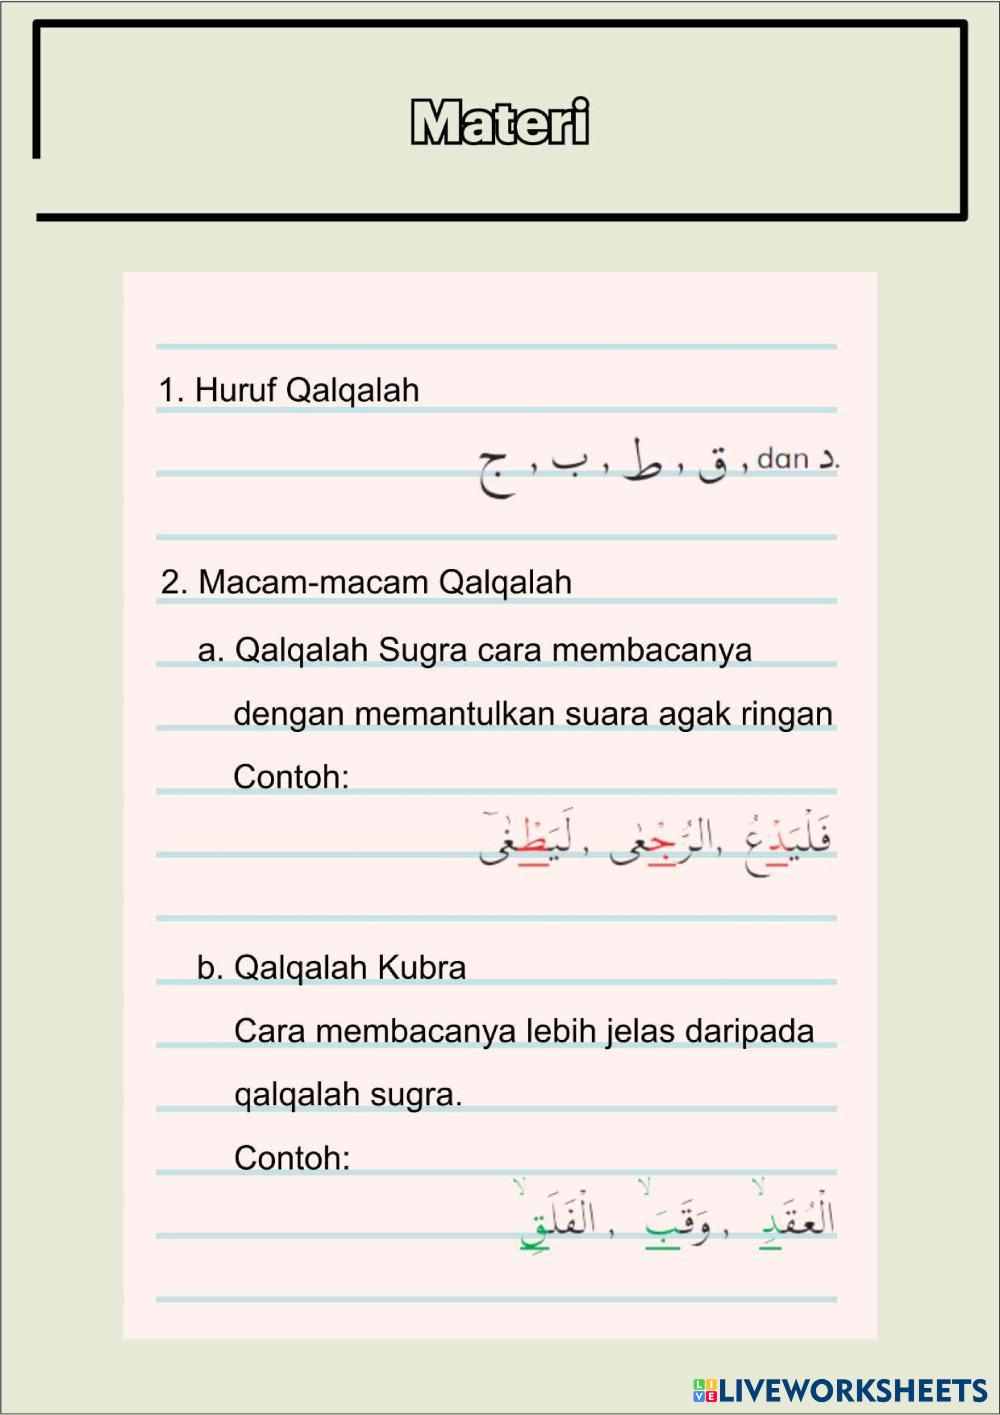 Materi
1. Huruf Qalqalah
ج , ب , ط , ق , dan د.
2. Macam-macam Qalqalah
a. Qalqalah Sugra cara membacanya
dengan memantulkan suara agak ringan
Contoh:
فَلْيَدْعُ ,الرُّجْعٰى , لَيَطْغٰىٓ
b. Qalqalah Kubra
Cara membacanya lebih jelas daripada
qalqalah sugra.
Contoh:
الْعُقَدِۙ , وَقَبَۙ , الْفَلَقِۙ
LIVEWORKSHEETS